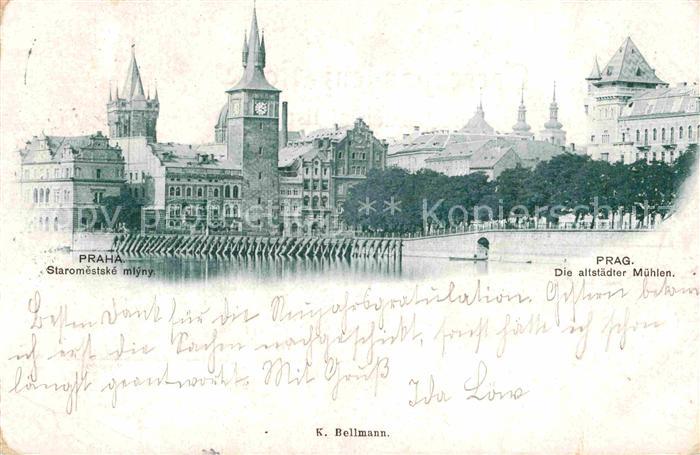 PRAHA.
Staroměstské mlýny.
PRAG.
Die altstädter Mühlen.
Besten Dank für die Neujahrsgratulation. Gestern bekam
ich erst die Sachen nachgeschickt, sonst hätte ich schon
längst geantwortet. Mit Gruß
Ida Löw
K. Bellmann.